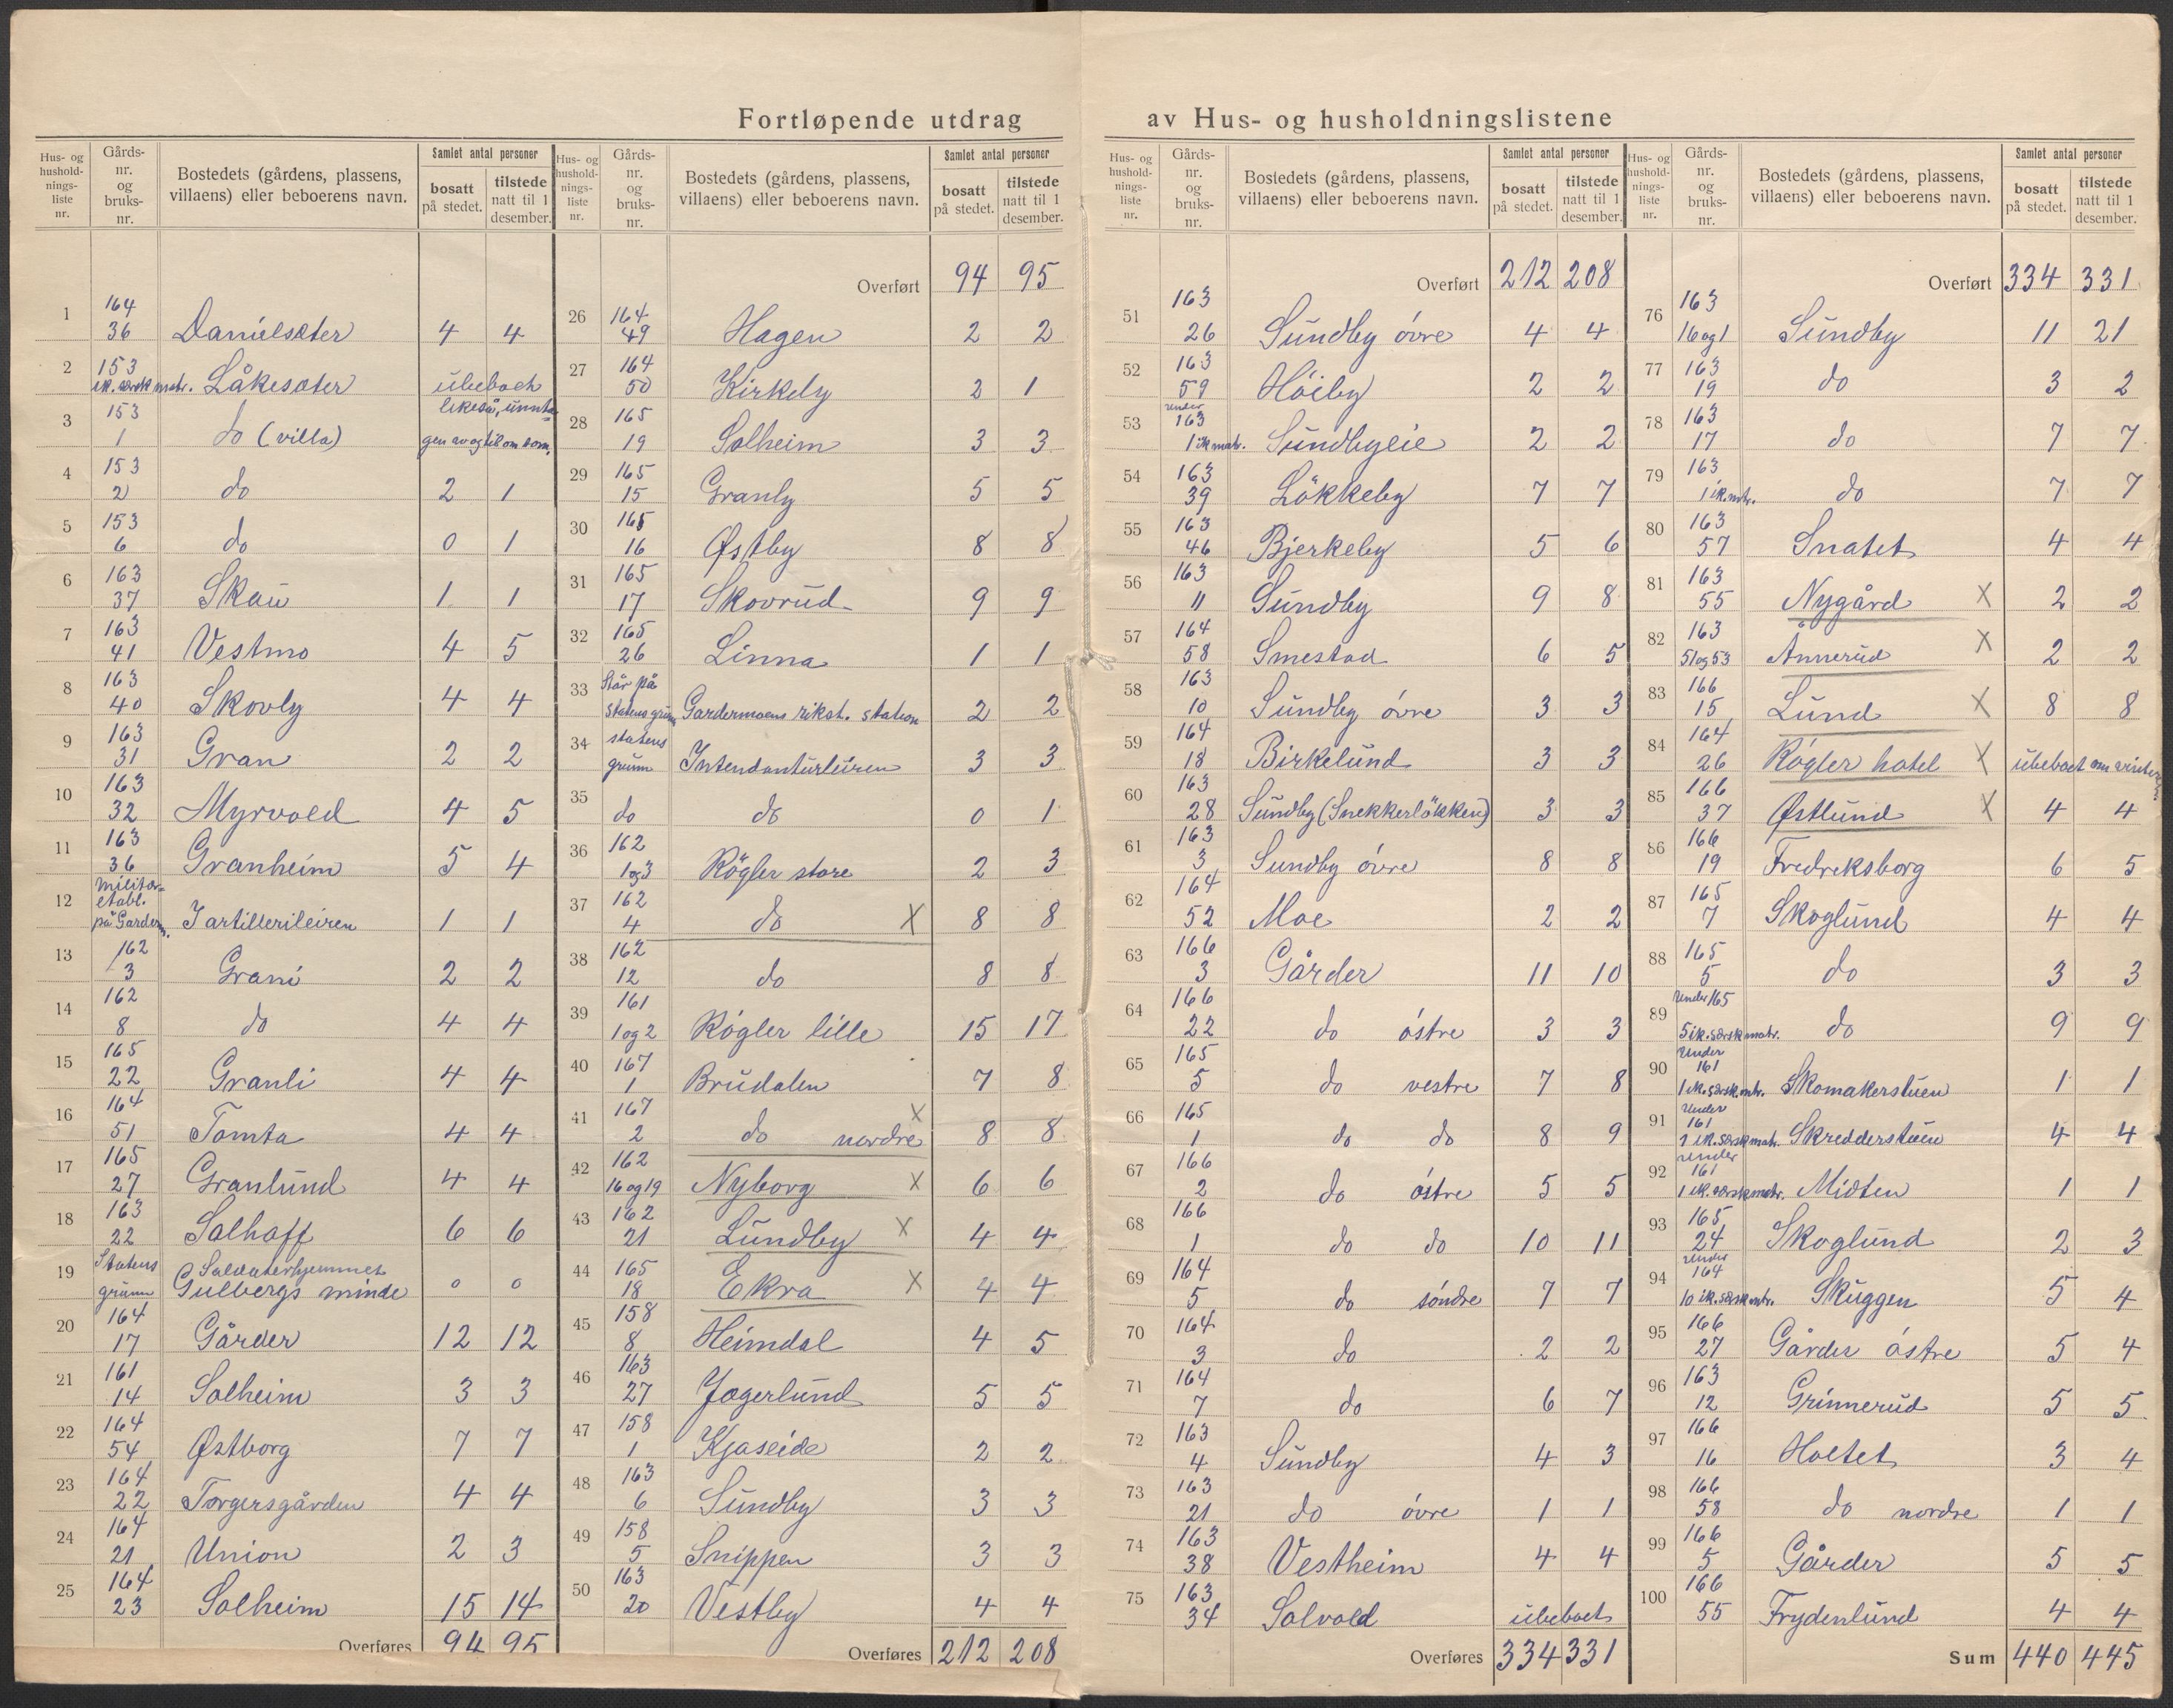 Fortløpende utdrag av Hus- og husholdningslistene
Hus- og husholdnings-liste nr. | Gårds-nr. og bruks-nr. | Bostedets (gårdens, plassens, villaens) eller beboerens navn. | Samlet antal personer | bosatt på stedet. | tilstede natt til 1 desember.
1 164 36 Danielsæter 4 4
2 153 ik. særsk matr. Låkesæter ubeboet
3 153 1 do (villa) likeså, unnta- gen av og til om som.
4 153 2 do 2 1
5 153 6 do 0 1
6 163 37 Skau 1 1
7 163 41 Vestmo 4 5
8 163 40 Skovly 4 4
9 163 31 Gran 2 2
10 163 32 Myrvold 4 5
11 163 36 Granheim 5 4
12 militær-etabl. på Garderm. I artillerileiren 1 1
13 162 3 Grani 2 2
14 162 8 do 4 4
15 165 22 Granli 4 4
16 164 51 Tomta 4 4
17 165 27 Granlund 4 4
18 163 22 Solhoff 6 6
19 Statens grunn Soldaterhjemmet Gulbergs minde 0 0
20 164 17 Gårder 12 12
21 161 14 Solheim 3 3
22 164 54 Østborg 7 7
23 164 22 Torgersgården 4 4
24 164 21 Union 2 3
25 164 23 Solheim 15 14
Overføres 94 95
Hus- og husholdnings-liste nr. | Gårds-nr. og bruks-nr. | Bostedets (gårdens, plassens, villaens) eller beboerens navn. | Samlet antal personer | bosatt på stedet. | tilstede natt til 1 desember.
Overført 94 95
26 164 49 Hagen 2 2
27 164 50 Kirkely 2 1
28 165 19 Solheim 3 3
29 165 15 Granly 5 5
30 165 16 Østby 8 8
31 165 17 Skovrud 9 9
32 165 26 Linna 1 1
33 Står på Statens grunn Gardermoens rikst. station 2 2
34 statens grunn Intendanturleiren 3 3
35 do do 0 1
36 162 1og3 Røgler store 2 3
37 162 4 do X 8 8
38 162 12 do 8 8
39 161 1og2 Røgler lille 15 17
40 167 1 Brudalen 7 8
41 167 2 do nordre X 8 8
42 162 16og19 Nyborg X 6 6
43 162 21 Lundby X 4 4
44 165 18 Ekra X 4 4
45 158 8 Heimdal 4 5
46 163 27 Jogerlund 5 5
47 158 1 Kjaseide 2 2
48 163 6 Sundby 3 3
49 158 5 Snippen 3 3
50 163 20 Vestby 4 4
Overføres 212 208
Hus- og hushold-nings-liste nr. | Gårds-nr. og bruks-nr. | Bostedets (gårdens, plassens, villaens) eller beboerens navn. | Samlet antal personer | bosatt på stedet. | tilstede natt til 1 desember.
Overført 212 208
51 163 26 Sundby øvre 4 4
52 163 59 Høiby 2 2
53 under 163 1 ik matr. Sundbyeie 2 2
54 163 39 Løkkeby 7 7
55 163 46 Bjerkeby 5 6
56 163 11 Sundby 9 8
57 164 58 Smestad 6 5
58 163 10 Sundby øvre 3 3
59 164 18 Birkelund 3 3
60 163 28 Sundby (Snekkerløkken) 3 3
61 163 3 Sundby øvre 8 8
62 164 52 Moe 2 2
63 166 3 Gårder 11 10
64 166 22 do østre 3 3
65 165 5 do vestre 7 8
66 165 1 do do 8 9
67 166 2 do østre 5 5
68 166 1 do do 10 11
69 164 5 do søndre 7 7
70 164 3 do 2 2
71 164 7 do 6 7
72 163 4 Sundby 4 3
73 163 21 do øvre 1 1
74 163 38 Vestheim 4 4
75 163 34 Solvold ubeboet
Overføres 334 331
Hus- og husholdnings-liste nr. | Gårds-nr. og bruks-nr. | Bostedets (gårdens, plassens, villaens) eller beboerens navn. | Samlet antal personer | bosatt på stedet. | tilstede natt til 1 desember.
Overført 334 331
76 163 16og1 Sundby 11 21
77 163 19 do 3 2
78 163 17 do 7 7
79 163 1 ik. mtr. do 7 7
80 163 57 Snatet 4 4
81 163 55 Nygård X 2 2
82 163 51og53 Annerud X 2 2
83 166 15 Lund X 8 8
84 164 26 Røgler hotel X ubeboet om vinteren
85 166 37 Østlund X 4 4
86 166 19 Fredreksborg 6 5
87 165 7 Skoglund 4 4
88 165 5 do 3 3
89 under 165 5 ik. særsk matr. do 9 9
90 under 161 1 ik. særsk. mtr. Skomakerstuen 1 1
91 under 161 1 ik. særsk matr. Skredderstuen 4 4
92 under 161 1 ik. særsk matr. Midten 1 1
93 165 24 Skoglund 2 3
94 under 164 10 ik. særsk mtr. Skuggen 5 4
95 166 27 Gårder østre 5 4
96 163 12 Grinnerud 5 5
97 166 16 Holtet 3 4
98 166 58 do nordre 1 1
99 166 5 Gårder 5 5
100 166 55 Frydenlund 4 4
Sum 440 445